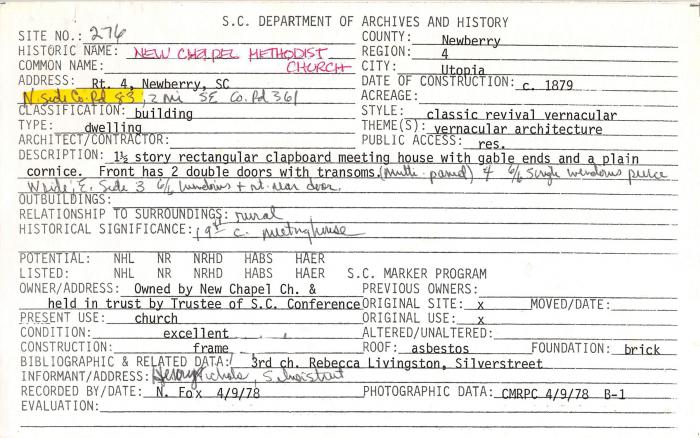 S.C. DEPARTMENT OF ARCHIVES AND HISTORY
SITE NO.: 276 COUNTY: Newberry
HISTORIC NAME: NEW CHAPEL METHODIST REGION: 4
COMMON NAME: CHURCH CITY: Utopia
ADDRESS: Rt. 4, Newberry, SC DATE OF CONSTRUCTION: c. 1879
N. side Co. Rd 83, 2 mi SE Co. Rd 361 ACREAGE:
CLASSIFICATION: building STYLE: classic revival vernacular
TYPE: dwelling THEME(S): vernacular architecture
ARCHITECT/CONTRACTOR: PUBLIC ACCESS: res.
DESCRIPTION: 1½ story rectangular clapboard meeting house with gable ends and a plain
cornice. Front has 2 double doors with transoms. (multi-paned) 4 6/6 single windows pierce
W side, E. Side 3 6/6 windows + rt. rear door.
OUTBUILDINGS:
RELATIONSHIP TO SURROUNDINGS: rural
HISTORICAL SIGNIFICANCE: 19th c. meetinghouse
POTENTIAL: NHL NR NRHD HABS HAER
LISTED: NHL NR NRHD HABS HAER S.C. MARKER PROGRAM
OWNER/ADDRESS: Owned by New Chapel Ch. & PREVIOUS OWNERS:
held in trust by Trustee of S.C. Conference ORIGINAL SITE: x MOVED/DATE:
PRESENT USE: church ORIGINAL USE: x
CONDITION: excellent ALTERED/UNALTERED:
CONSTRUCTION: frame ROOF: asbestos FOUNDATION: brick
BIBLIOGRAPHIC & RELATED DATA: 3rd ch. Rebecca Livingston, Silverstreet
INFORMANT/ADDRESS: Nichols, Silverstreet
RECORDED BY/DATE: N. Fox 4/9/78 PHOTOGRAPHIC DATA: CMRPC 4/9/78 B-1
EVALUATION: